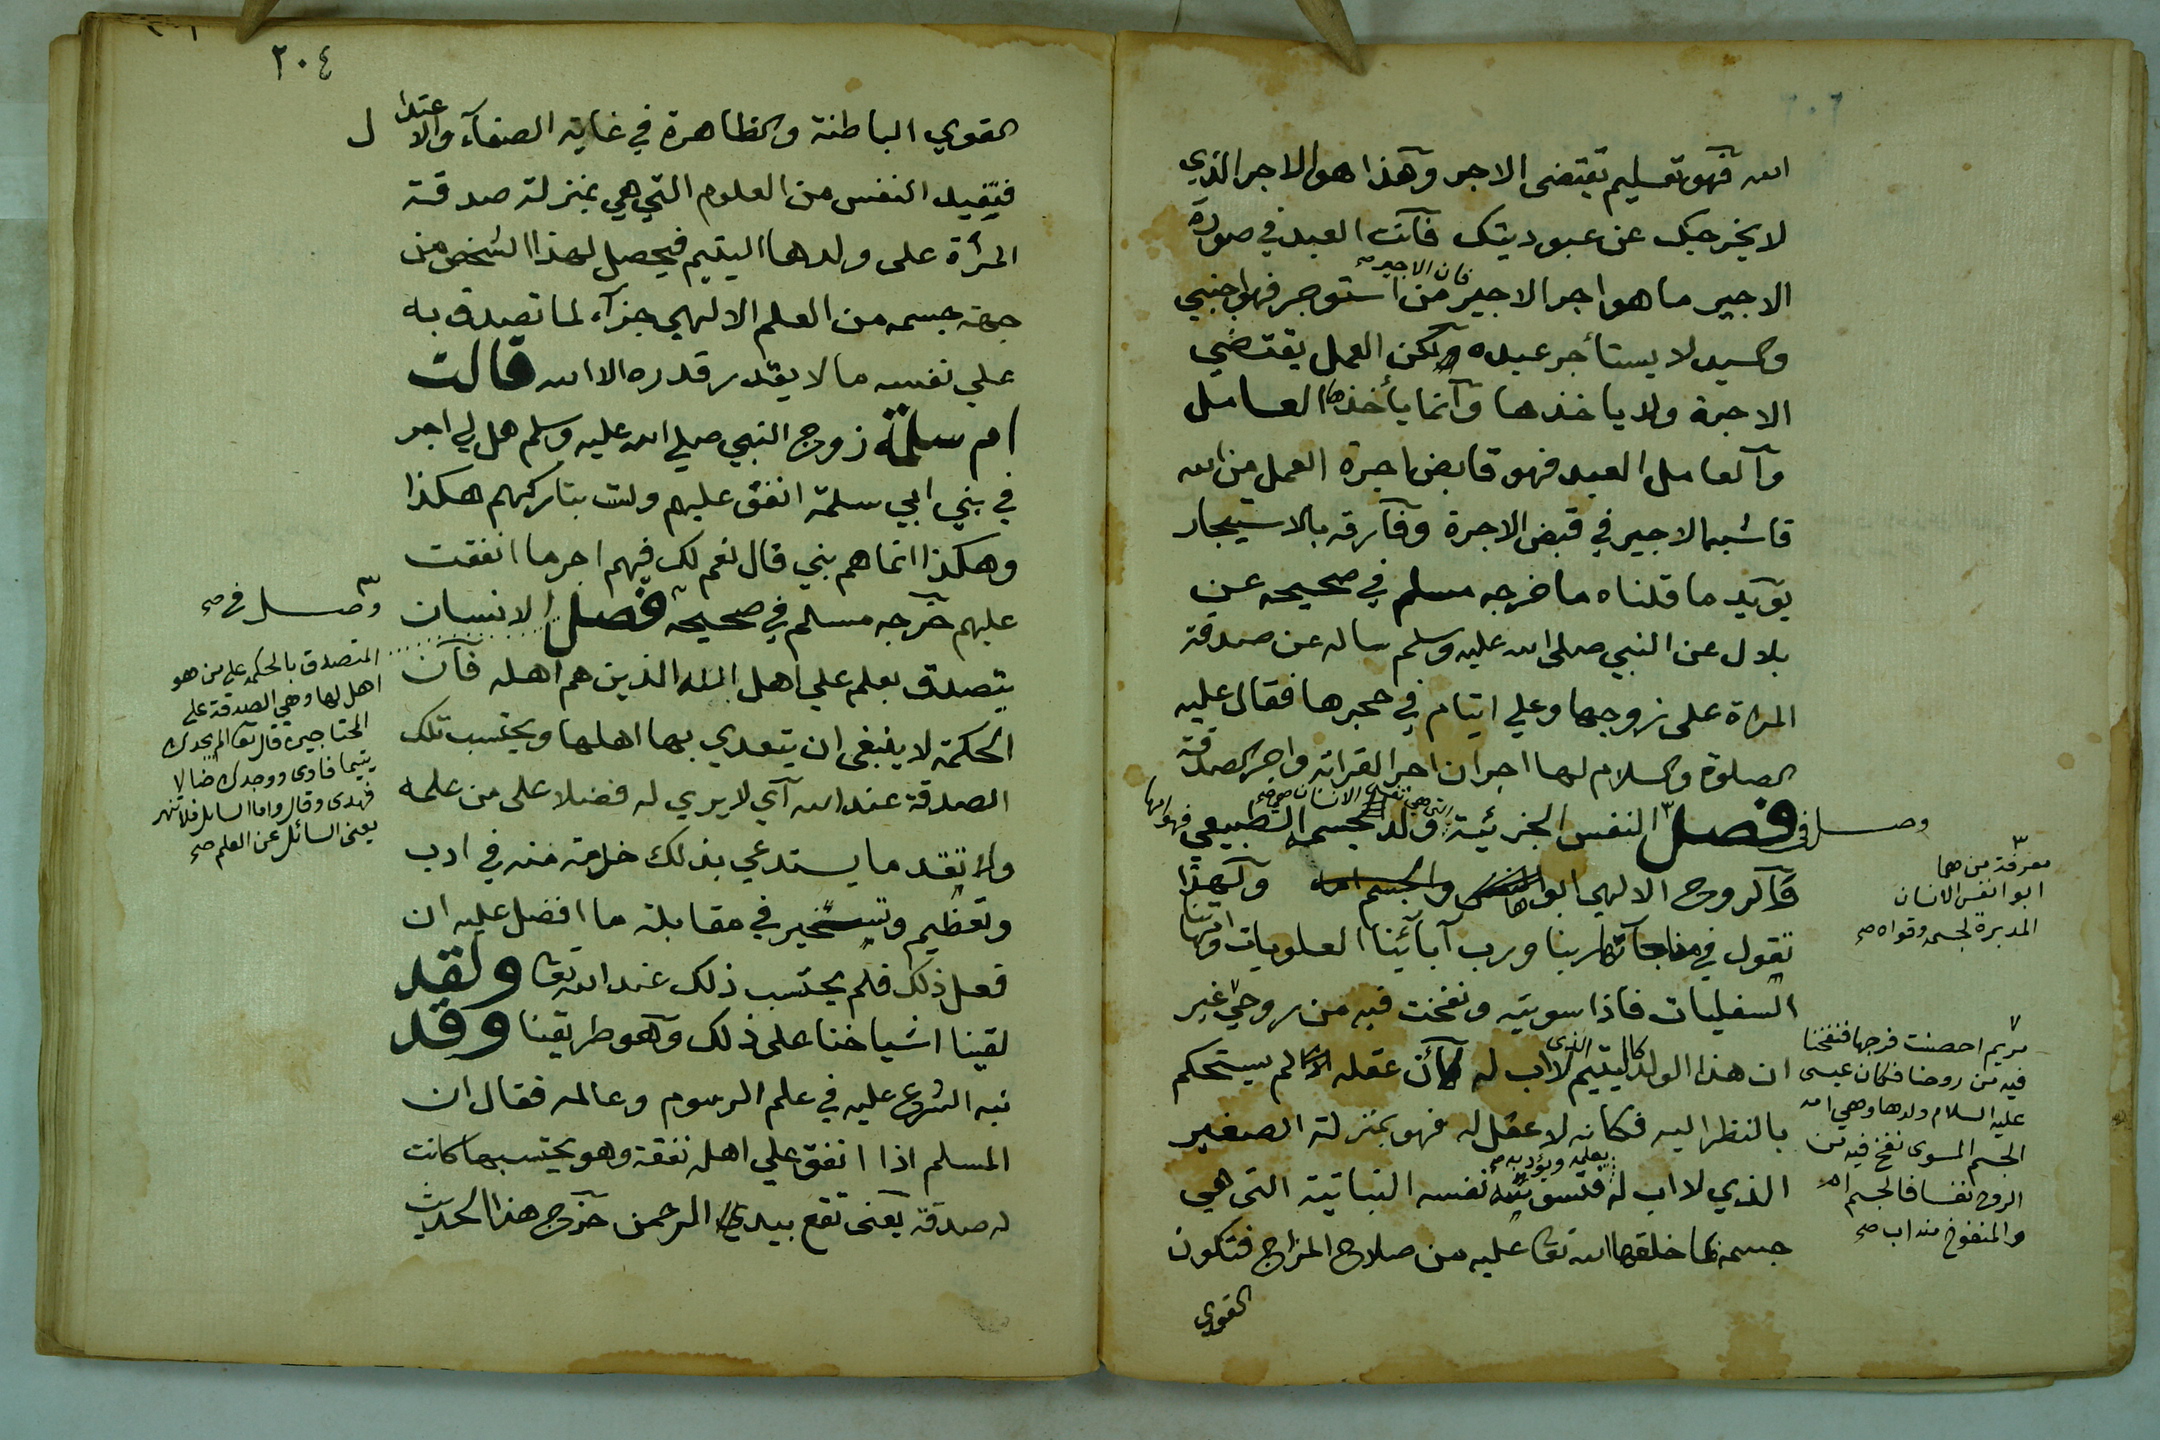 الله فهو تعليم تقتضى الاجر وهذا هو الاجر الذي
لا يخرجك عن عبوديتك فانت العبد في صورة
الاجير ما هو اجر الاجير فان الاجير صح من استوجر فهو اجنبي
والسيد لا يستأجر عبده ولكن العمل يقتضي
الاجرة ولا ياخذها وانما يأخذها العامل
والعامل العبد فهو قابض اجرة العمل من الله
فاشبه الاجير في قبض الاجرة وفارقه بالاستيجار
يؤيد ما قلناه ما خرجه مسلم في صحيحه عن
بلال عن النبي صلى الله عليه وسلم ساله عن صدقة
المراة على زوجها وعلي ايتام في حجرها فقال عليه
الصلوة والسلام لها اجران اجر القرابة واجر الصدقة
وصل في فصل النفس الجزئية التي هي نفس الانسان صح ولد الجسم الطبيعي فهو امها
فالروح الالهي ابوها ولهذا
نقول في مناجاتنا ربنا ورب آبائنا العلويات وامهاتنا
السفليات فاذا سويته ونفخت فيه من روحي غير
ان هذا الولد كاليتيم الذي لا اب له لأن عقله لم يستحكم
بالنظر اليه فكانه لا عقل له فهو بمنزلة الصغير
الذي لا اب له يعلمه ويؤدبه صح فتسوسه نفسه النباتية التى هي
جسمه لما خلقها الله تعا عليه من صلاح المزاج فتكون
القوي
معرفة من هما
ابوا نفس الانسان
المدبرة لجسمه وقواه صح
مريم احصنت فرجها فنفخنا
فيه من روحنا فكان عيسى
عليه السلام ولدها وهي امه
الجسم المسوى نفخ فيه من
الروح نفسا فالجسم ام
والمنفوخ منه اب صح
٢٠٤
القوي الباطنة والظاهرة في غاية الصفآء والاعتدال
فتفيد النفس من العلوم التي هي بمنزلة صدقة
المرأة على ولدها اليتيم فيحصل لهذا الشخص من
جهة جسمه من العلم الالهي جزآء لما تصدق به
علي نفسه ما لا يقدر قدره الا الله قالت
ام سلمة زوج النبي صلي الله عليه وسلم هل لي اجر
في بني ابي سلمة انفق عليهم ولست بتاركهم هكذا
وهكذا انما هم بني قال نعم لك فيهم اجر ما انفقت
عليهم خرجه مسلم في صحيحه فصل الانسان
يتصدق بعلمه علي اهل الله الذين هم اهله فان
الحكمة لا ينبغى ان يتعدي بها اهلها ويحتسب تلك
الصدقة عند الله آي لا يري له فضلا على من علمه
ولا تقدما يستدعي بذلك خدمة منه في ادب
وتعظيم وتسخير في مقابلة ما افضل عليه ان
فعل ذلك فلم يحتسب ذلك عند الله تعا ولقد
لقينا اشياخنا على ذلك وهو طريقنا وقد
نبه الشرع عليه في علم الرسوم وعالمه فقال ان
المسلم اذا انفق علي اهله نفقة وهو يحتسبها كانت
له صدقة يعنى تقع بيد الرحمن خرج هذا الحديث
وصل في صح
المتصدق بالحكمة على من هو
اهل لها وهي الصدقة على
المحتاجين قال تعا الم يجدك
يتيما فاوى ووجدك ضالا
فهدى وقال واما السائل فلا تنهر
يعنى السائل عن العلم صح